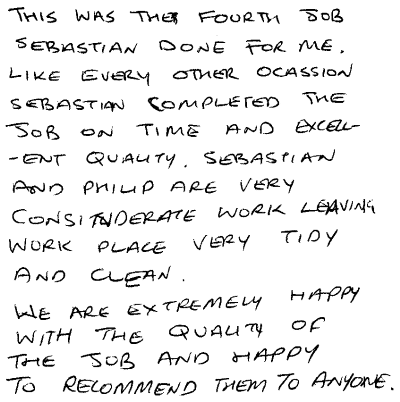 THIS WAS THE FOURTH JOB
SEBASTIAN DONE FOR ME.
LIKE EVERY OTHER OCASSION
SEBASTIAN COMPLETED THE
JOB ON TIME AND EXCELL-
-ENT QUALITY. SEBASTIAN
AND PHILIP ARE VERY
CONSINDERATE WORK LEAVING
WORK PLACE VERY TIDY
AND CLEAN.
WE ARE EXTREMELY HAPPY
WITH THE QUALITY OF
THE JOB AND HAPPY
TO RECOMMEND THEM TO ANYONE.